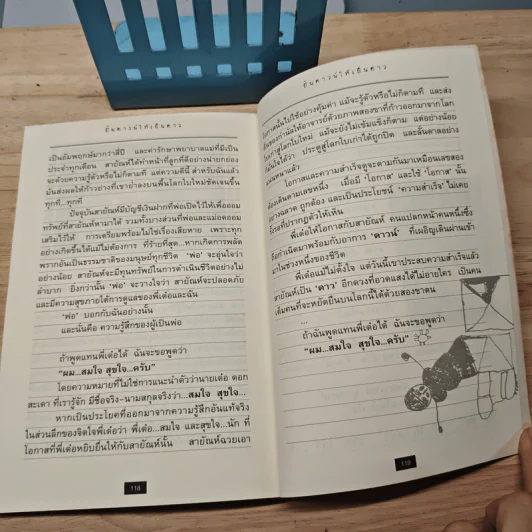 ยินดาวน์ให้เยินดาว
เป็นอัมพฤกษ์มากว่าสี่ปี และค่ารักษาพยาบาลแม่ที่มีเป็น
ประจำทุกเดือน สายัณห์ได้ทำหน้าที่ลูกที่ดีอย่างน่ายกย่อง
จะด้วยความรู้ตัวหรือไม่ก็ตามที แต่ความดีนี้ สำหรับฉันแล้ว
มันส่งผลให้ ก้าวย่างที่เขาย่ำลงบนพื้นโลกใบใหม่ชัดเจนขึ้น
ทุกที...ทุกที
ปัจจุบันสายัณห์มีบัญชีเงินฝากที่พ่อเปิดไว้ให้เพื่อออม
ทรัพย์ที่สายัณห์หามาได้ รวมทั้งบางส่วนที่พ่อและแม่อดออม
เสริมไว้ให้ การเตรียมพร้อมไม่ใช่เรื่องเสียหาย เพราะทุก
อย่างเกิดขึ้นได้แม้ไม่ต้องการ ที่ร้ายที่สุด...หากเกิดการพลัด
พรากอันเป็นธรรมชาติของมนุษย์ทุกชีวิต 'พ่อ' จะอุ่นใจว่า
อย่างน้อย สายัณห์จะมีทุนทรัพย์ในการดำเนินชีวิตอย่างไม่
ลำบาก ยิ่งกว่านั้น 'พ่อ' จะวางใจว่า สายัณห์จะปลอดภัย
และมีความสุขภายใต้การดูแลของพี่เต๋อและฉัน
'พ่อ' บอกกับฉันอย่างนั้น
และนั่นคือ ความรู้สึกของผู้เป็นพ่อ
ถ้าฉันพูดแทนพี่เต๋อได้ ฉันจะขอพูดว่า
"ผม...สมใจ สุขใจ...ครับ"
โดยความหมายที่ไม่ใช่การแนะนำตัวว่านายเต๋อ ดอก
สะเดา ที่เรารู้จัก มีชื่อจริง-นามสกุลจริงว่า...สมใจ สุขใจ...
หากเป็นประโยคที่ออกมาจากความรู้สึกอันแท้จริง
ในส่วนลึกของจิตใจพี่เต๋อว่า พี่เต๋อ...สมใจ และสุขใจ...นัก ที่
โอกาสที่พี่เต๋อหยิบยื่นให้กับสายัณห์นั้น สายัณห์ฉวยเอา
118
โอกาสนั้นไปใช้อย่างคุ้มค่า แม้จะรู้ตัวหรือไม่ก็ตามที และส่ง
โอกาสและความสำเร็จดูจะตามกันมาเหมือนเลขสอง
ต้องเดินตามเลขหนึ่ง เมื่อมี 'โอกาส' และใช้ 'โอกาส' นั้น
อย่างฉลาด ถูกต้อง และเป็นประโยชน์ 'ความสำเร็จ' ไม่เคย
พี่เต๋อให้โอกาสกับสายัณห์ คนแปลกหน้าคนหนึ่งซึ่ง
ถือกำเนิดมาพร้อมกับอาการ 'ดาวน์' ที่เผอิญเดินผ่านเข้า
มาในช่วงหนึ่งของชีวิต
พี่เต๋อแม้ไม่ตั้งใจ แต่วันนี้เขาประสบความสำเร็จแล้ว
สายัณห์เป็น 'ดาว' อีกดวงที่อวดแสงได้ไม่อายใคร เป็นคน
เต็มคนที่จะหยัดยืนบนโลกนี้ได้ด้วยสองขาตน
...
ถ้าฉันพูดแทนพี่เต๋อได้ ฉันจะขอพูดว่า
"ผม...สมใจ สุขใจ...ครับ"
119